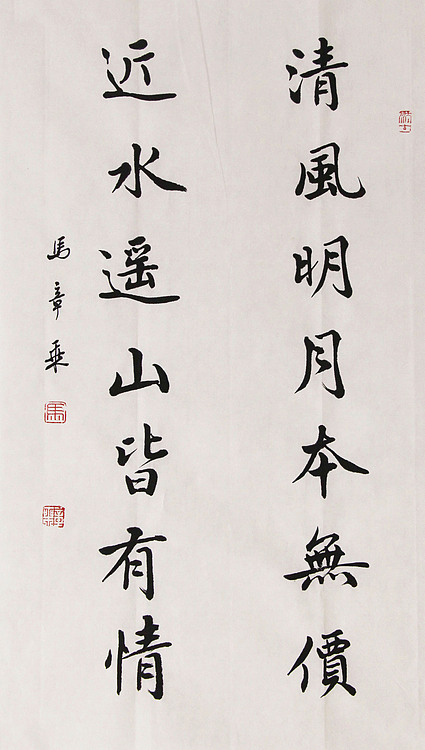 清風明月本無價
近水遥山皆有情
馬章乘
馬